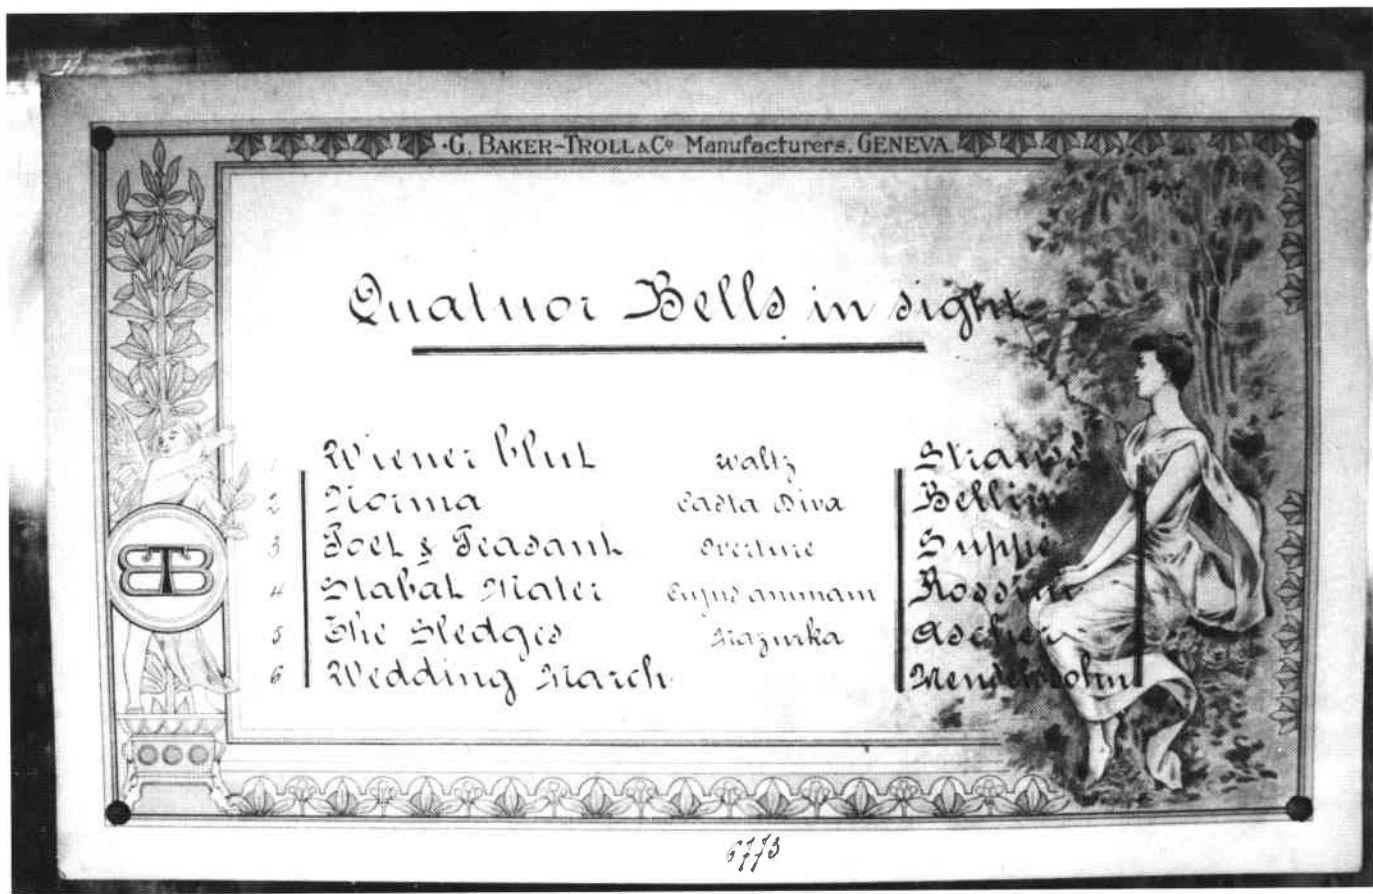 G. BAKER-TROLL & Co Manufacturers. GENEVA.
Quatuor Bells in sight
1 Wiener blut waltz Strauss
2 Norma Casta Diva Bellini
3 Poet & Peasant Overture Suppé
4 Stabat Mater Cujus animam Rossini
5 The Sledges Mazurka Ascher
6 Wedding March Mendelssohn
BTB
6773